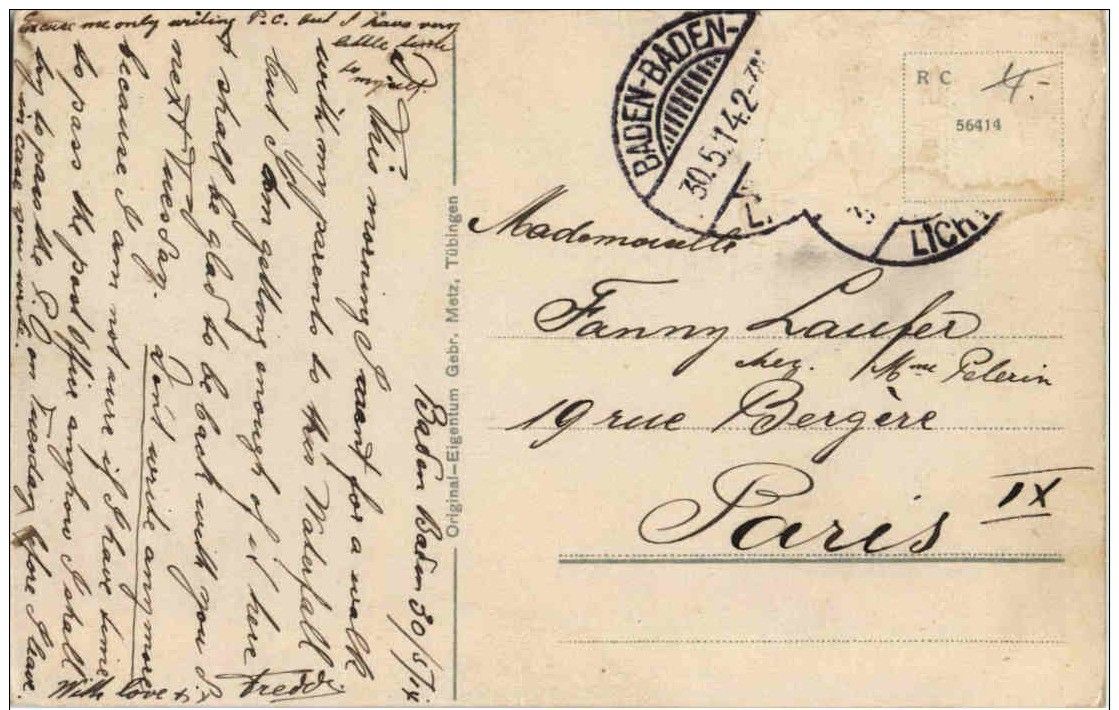 Excuse me only writing P.C. but I have very
little time
to
myself.
Baden Baden 30/5/14
D.
This morning I went for a walk
with my parents to this Waterfall
but I am getting enough of it here
& shall be glad to be back with you D.
next Tuesday. Don't write anymore
because I am not sure if I have time
to pass the post office anyhow I shall
try to pass the P.O. on Tuesday before I leave
in case you wrote.
With love
Freddi.
Original-Eigentum Gebr. Metz, Tübingen
BADEN-BADEN-
30.5.14.2-
LICH
R C
56414
4.-
Mademoiselle
Fanny Laufer
chez. Mme Pelerin
19 rue Bergère
Paris IX